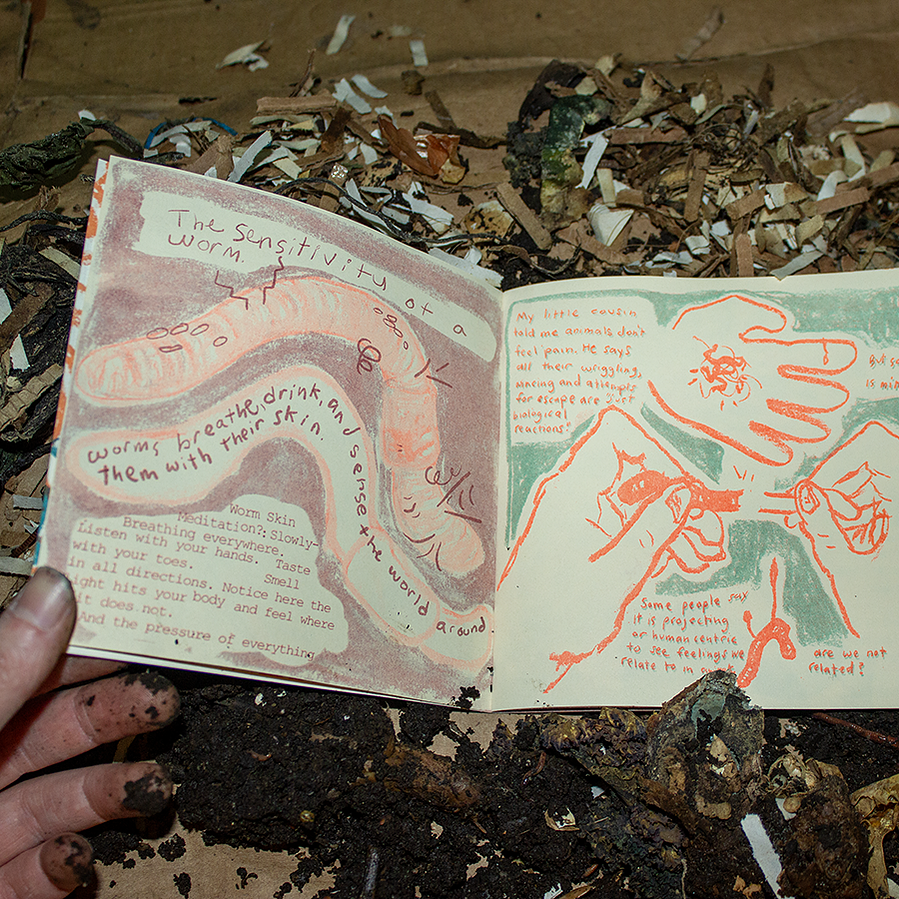 The sensitivity of a
worm.
worms breathe, drink, and sense the world around
them with their skin.
Worm Skin
Meditation?: Slowly-
Breathing everywhere.
Listen with your hands. Taste
with your toes. Smell
in all directions. Notice here the
light hits your body and feel where
it does not.
And the pressure of everything
My little cousin
told me animals don't
feel pain. He says
all their wriggling,
and attempts
for escape are just
biological
reactions.
But
is
Some people say
it is projecting
or human centric
to see feelings we
relate to in
are we not
related?